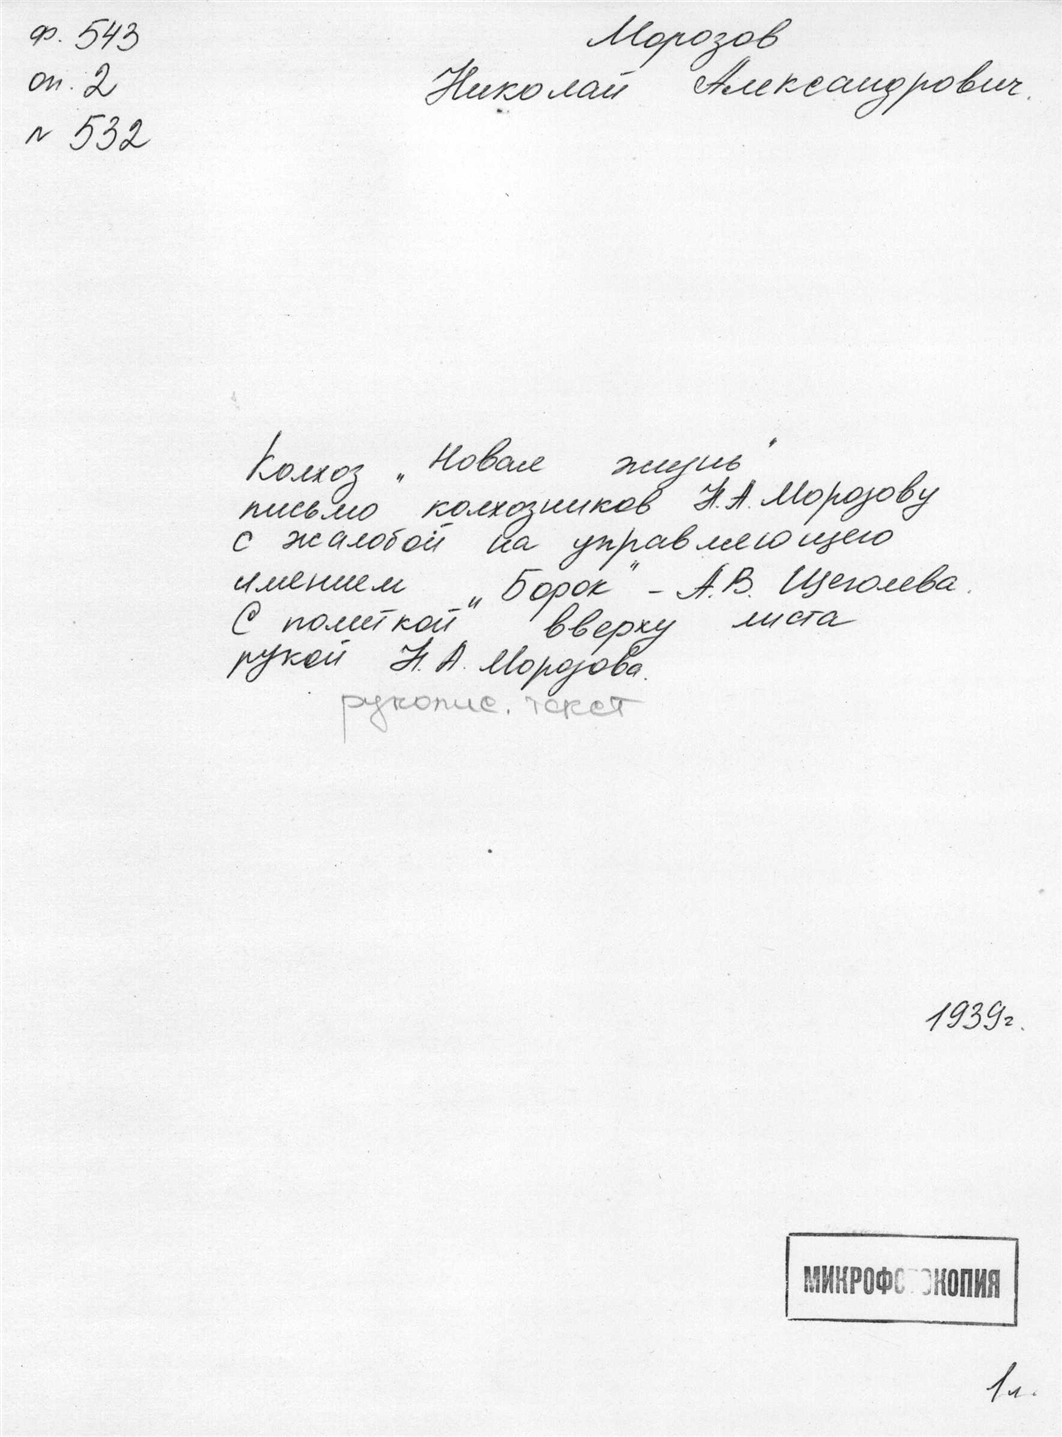 ф. 543
оп. 2
N 532
Морозов
Николай Александрович.
Колхоз „Новая жизнь"
письмо колхозников Н.А. Морозову
с жалобой на управляющего
имением „Борок" - А.В. Щеголева.
С пометкой вверху листа
рукой Н.А. Морозова.
рукопис. текст
1939г.
МИКРОФОТОКОПИЯ
1л.